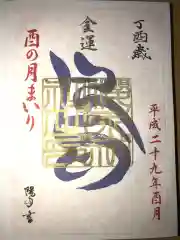 丁酉歳
平成二十九年酉月
金運
酉の月まいり
陽運寺